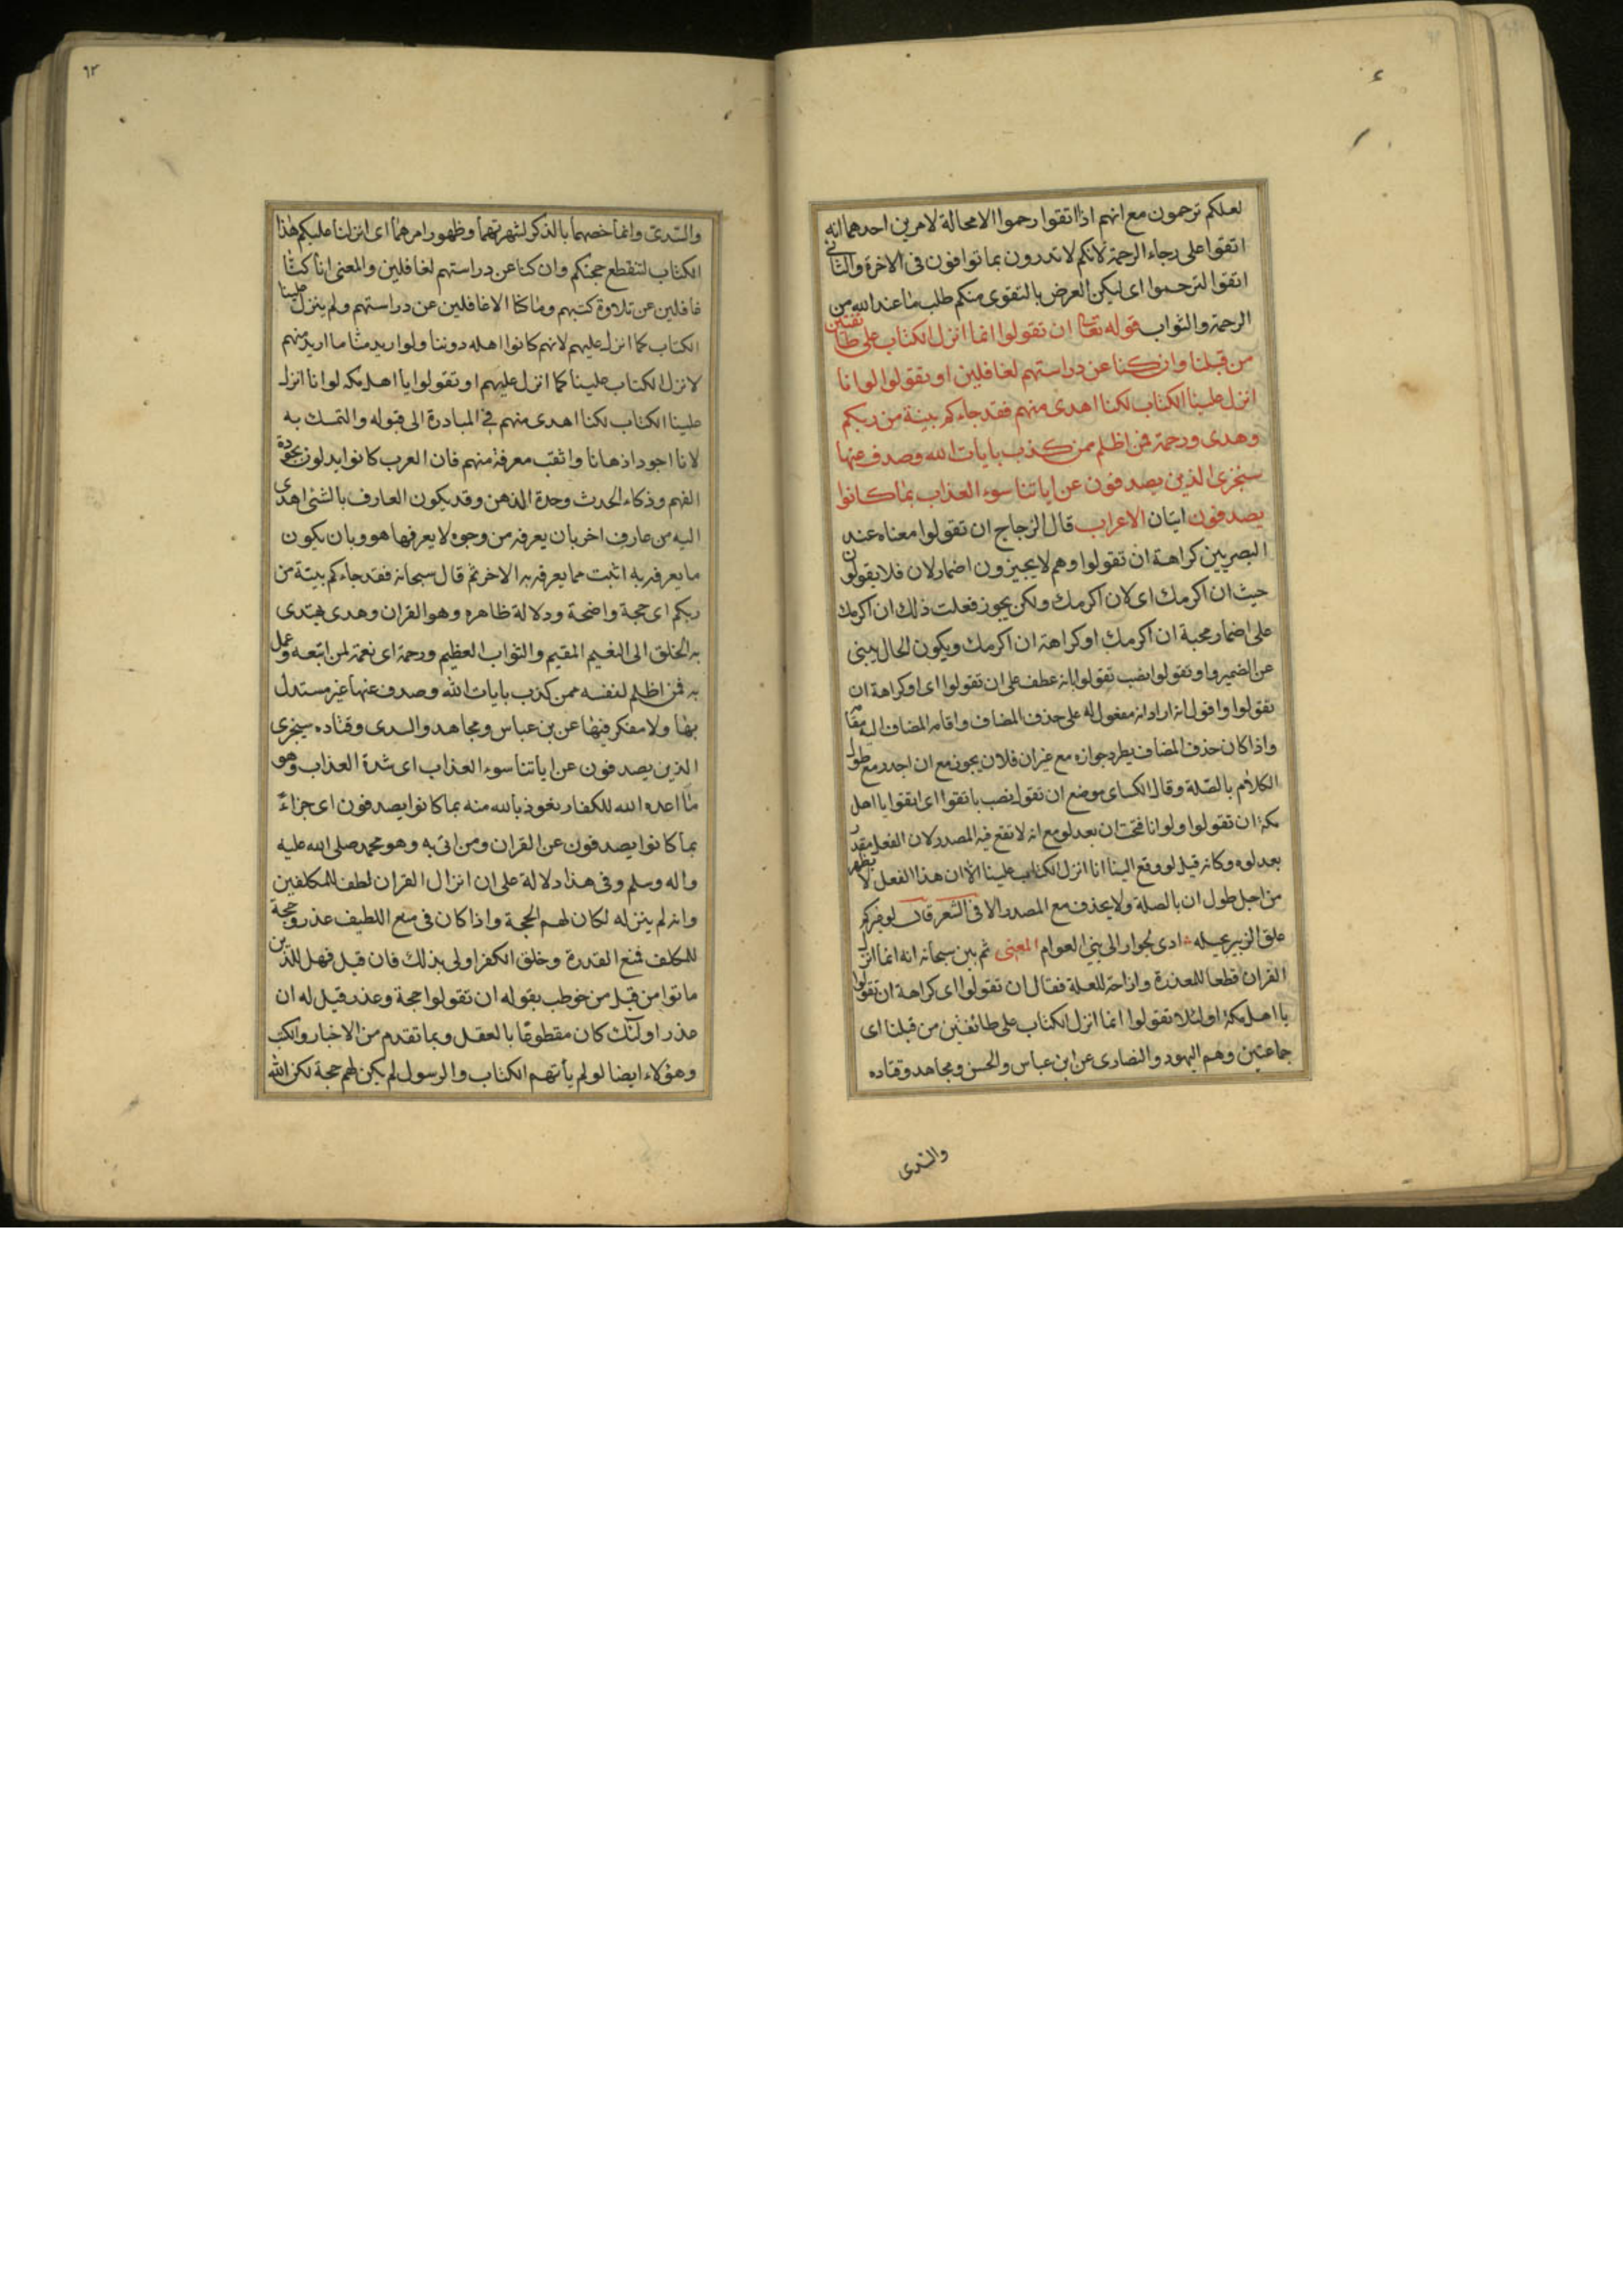 لعلكم ترحمون مع انهم اذا اتقوا رحموا الامحالة لامرين احدهما انه
اتقوا على رجاء الرحمة لانكم لا تدرون بما توافون فى الاخرة والثانى
اتقوا لترحموا اى ليكن الغرض بالتقوى منكم طلب ما عند الله من
الرحمة والثواب قوله تعالى ان تقولوا انما انزل الكتاب على طائفتين
من قبلنا وان كنا عن دراستهم لغافلين او تقولوا لوانا
انزل علينا الكتاب لكنا اهدى منهم فقد جاءكم بينة من ربكم
وهدى ورحمة فمن اظلم ممن كذب بايات الله وصدف عنها
سنجزى الذين يصدفون عن اياتنا سوء العذاب بما كانوا
يصدفون ايتان الاعراب قال الزجاج ان تقولوا معناه عند
البصريين كراهة ان تقولوا وهم لا يجيزون اضمار لان فلا يقولون
جيت ان اكرمك اى لان اكرمك ولكن يجوز فعلت ذلك ان اكرمك
على اضمار محبة ان اكرمك او كراهة ان اكرمك ويكون الحال ينبى
عن الضمير واو تقولوا نصب تقولوا بانه عطف على ان تقولوا اى او كراهة ان
تقولوا واقول انه اراد انه مفعول له على حذف المضاف واقامه المضاف اليه مقامه
واذا كان حذف المضاف يطرد جوازه مع غير ان فلان يجوز مع ان اجدر مع طول
الكلام بالصلة وقال الكساى موضع ان تقولوا نصب باتقوا اى اتقوا يا اهل
مكة ان تقولوا ولوانا فتحت ان بعد لو مع انه لا تقع فيه المصدر لان الفعل مقدر
بعد لو وكانه قيل لو وقع الينا انا انزل الكتاب علينا الا ان هذا الفعل لا يظهر
من اجل طول ان بالصلة ولا يحذف مع المصدر الا فى الشعر قال لو غيركم
علق الزبير بحبله ادى الجوار الى بنى العوام المعنى ثم بين سبحانه انه انما انزل
القران قطعا للمعذرة وازاحة للعلة فقال ان تقولوا اى كراهة ان تقولوا
يا اهل مكة او لئلا تقولوا انما انزل الكتاب على طائفتين من قبلنا اى
جماعتين وهم اليهود والنصارى عن ابن عباس والحسن ومجاهد وقتاده
والسدى
٩٢
والسدى وانما خصهما بالذكر لشهرتهما وظهور امرهما اى انزلنا عليكم هذا
الكتاب لتنقطع حجتكم وان كنا عن دراستهم لغافلين والمعنى انا كنا
غافلين عن تلاوة كتبهم وما كنا الا غافلين عن دراستهم ولم ينزل علينا
الكتاب كما انزل عليهم لانهم كانوا اهله دوننا ولو اريد منا ما اريد منهم
لانزل الكتاب علينا كما انزل عليهم او تقولوا يا اهل مكه لوانا انزل
علينا الكتاب لكنا اهدى منهم فى المبادرة الى قبوله والتمسك به
لانا اجود اذهانا واثقب معرفة منهم فان العرب كانوا يدلون بجودة
الفهم وذكاء الحدث وحدة الذهن وقد يكون العارف بالشئ اهدى
اليه من عارف اخر بان يعرفه من وجوه لا يعرفها هو وبان يكون
ما يعرفه به اثبت مما يعرفه به الاخر ثم قال سبحانه فقد جاءكم بينة من
ربكم اى حجة واضحة ودلالة ظاهره وهو القران وهدى يهتدى
به الخلق الى النعيم المقيم والثواب العظيم ورحمة اى نعمة لمن اتبعه وعمل
به فمن اظلم لنفسه ممن كذب بايات الله وصدف عنها غير مستدل
بها ولا مفكر فيها عن بن عباس ومجاهد والسدى وقتاده سيجزى
الذين يصدفون عن اياتنا سوء العذاب اى شدة العذاب وهو
ما اعده الله للكفار نعوذ بالله منه بما كانوا يصدفون اى جزاء
بما كانوا يصدفون عن القران ومن اتى به وهو محمد صلى الله عليه
واله وسلم وفى هذا دلالة على ان انزال القران لطف للمكلفين
وانه لم ينزله لكان لهم الحجة واذا كان فى منع اللطيف عذر وحجة
للمكلف فمنع القدرة وخلق الكفر اولى بذلك فان قيل فهل للذين
ماتوا من قبل من خوطب بقوله ان تقولوا حجة وعذر قيل له ان
عذر اولئك كان مقطوعا بالعقل وبما تقدم من الاخبار والكتب
وهؤلاء ايضا لو لم يأتهم الكتاب والرسول لم يكن لهم حجة لكن الله